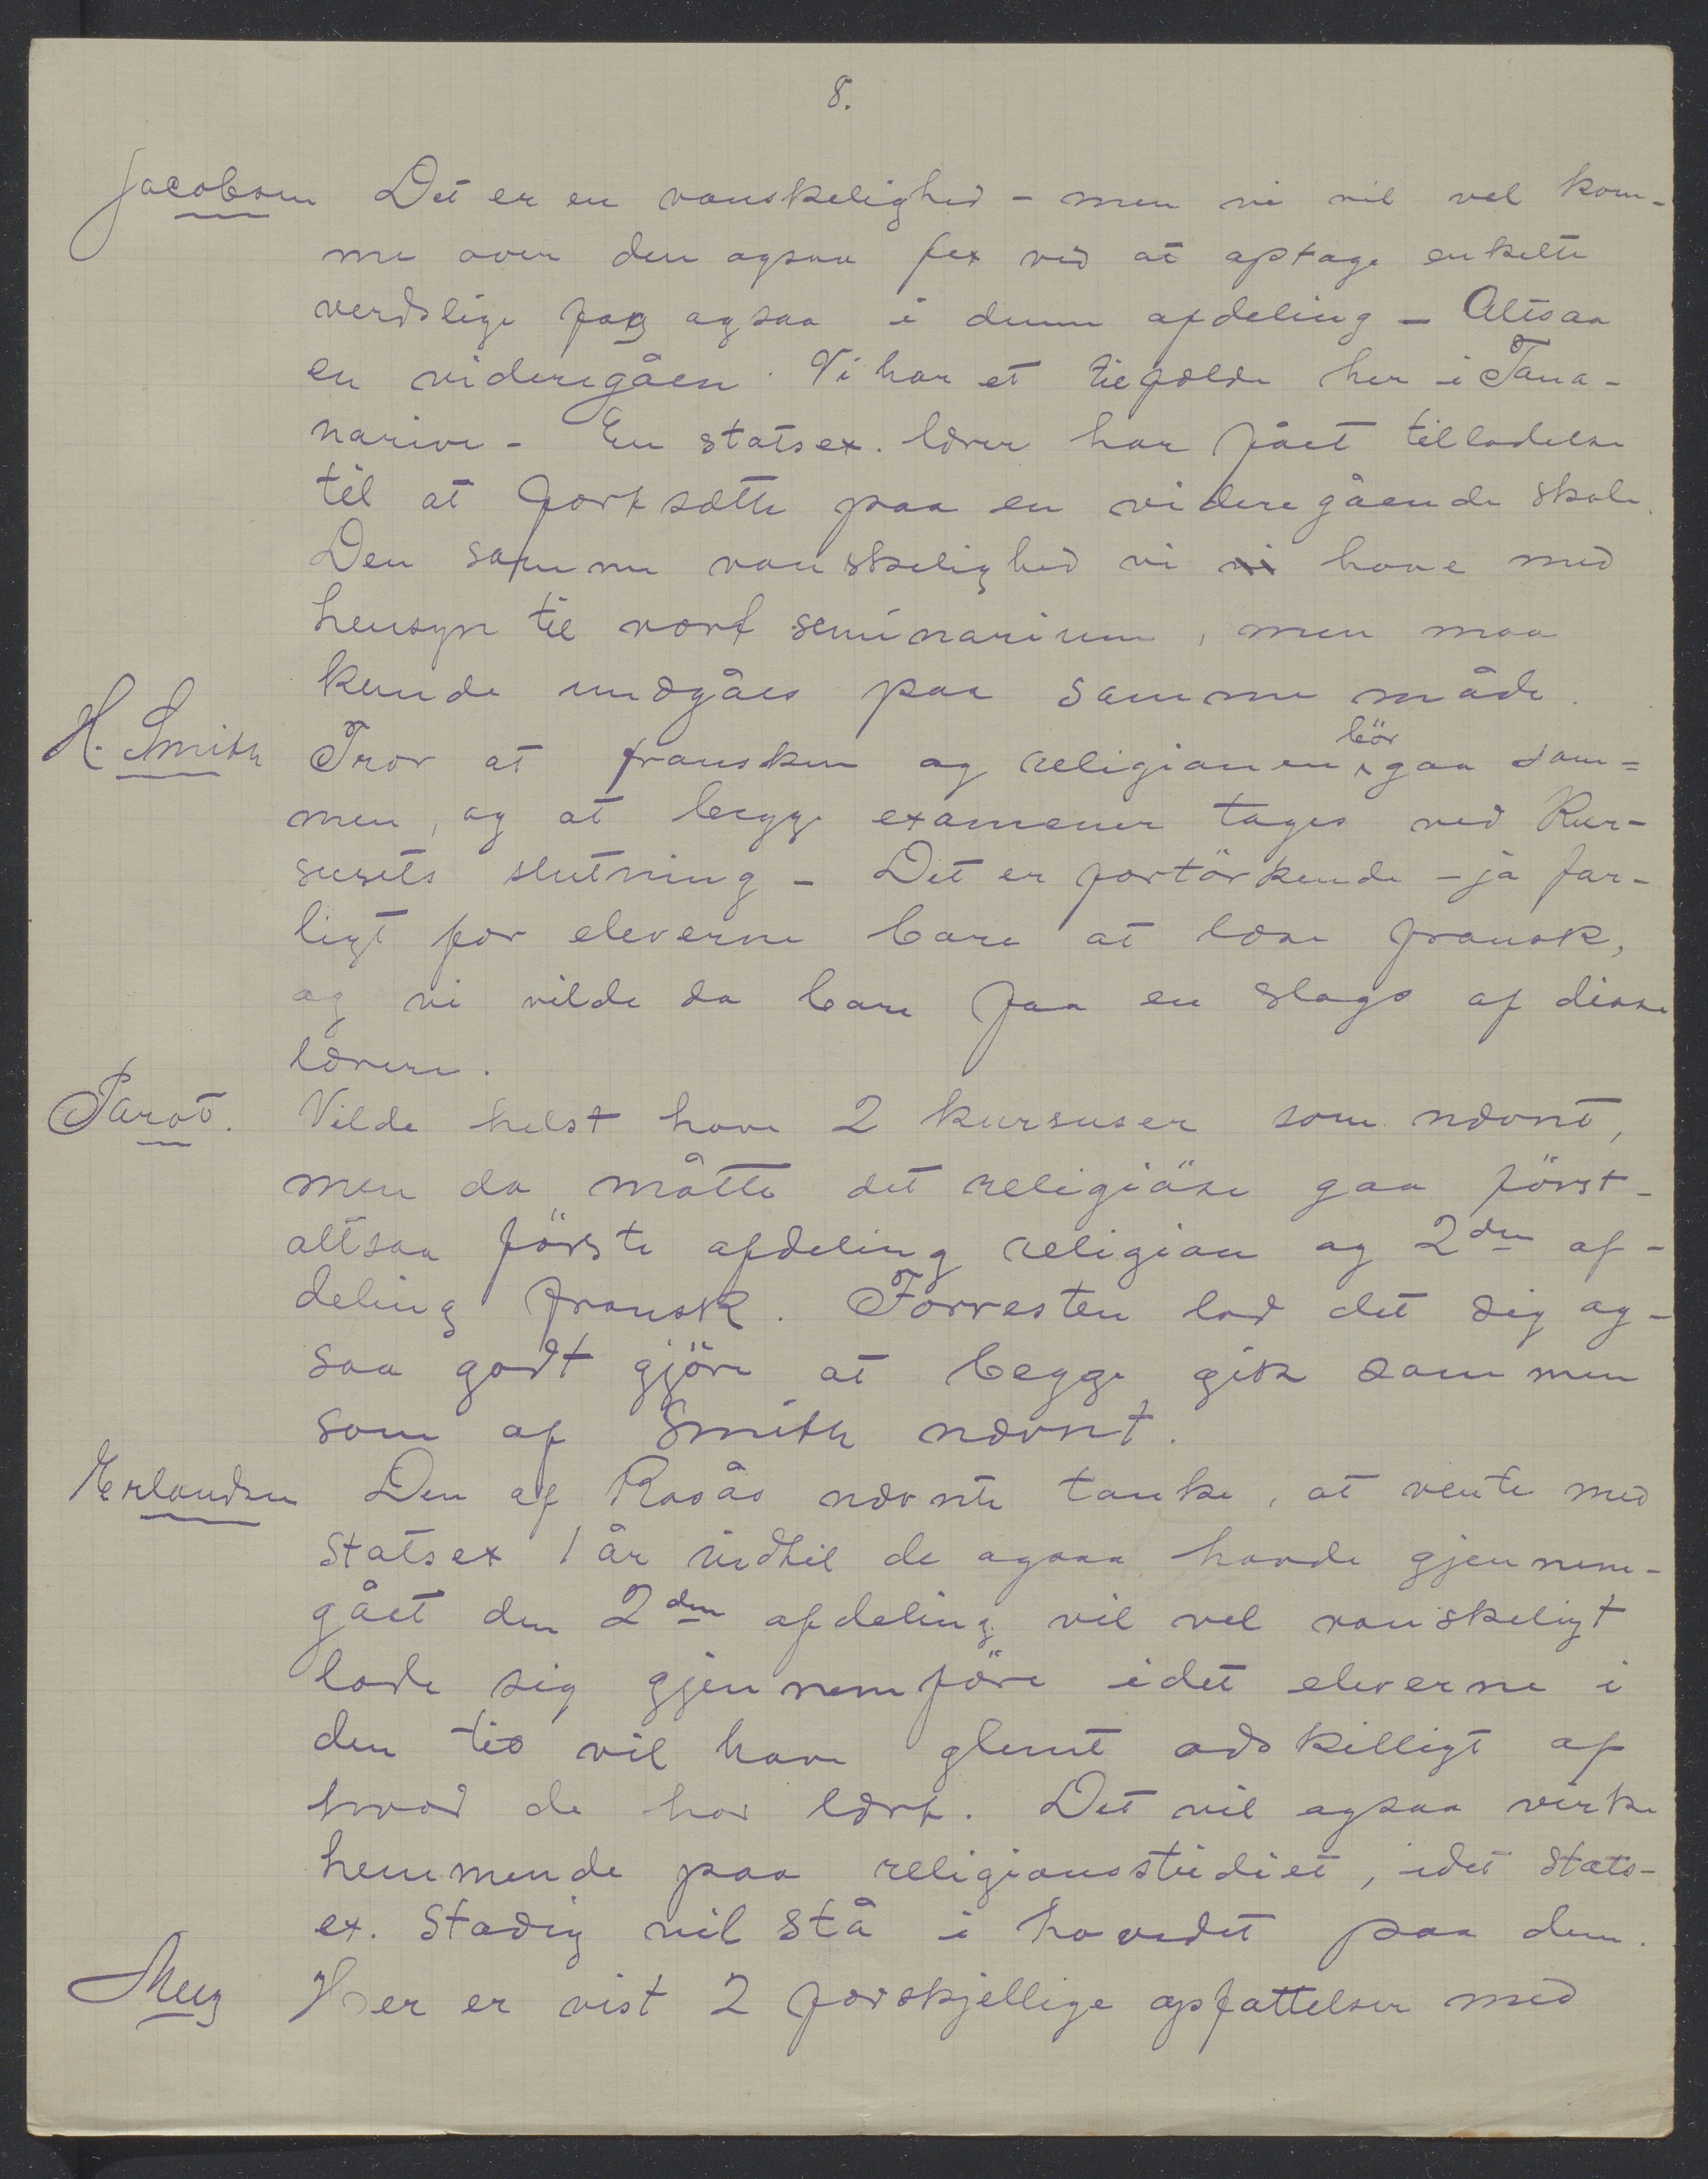 8.
Jacobsen Det er en vanskelighed - men vi vil vel kom-
me over den ogsaa fex ved at optage enkelte
verdslige fag ogsaa i denne afdeling - Altsaa
en videregåen. Vi har et tilfælde her i Tana-
narive - En statsex. lærer har fået tilladelse
til at fortsætte paa en videregående skole.
Den samme vanskelighed vi vi have med
hensyn til vort seminarium, men maa
kunde undgåes paa samme måde.
H. Smith Tror at fransken og religionen bör gaa sam=
men, og at begge examener tages ved Kur-
susets slutning - Det er fortörkende - ja far-
ligt for eleverne bare at læse fransk,
og vi vilde da bare faa en slags af disse
lærere.
Parat. Vilde helst have 2 kursuser som nævnt,
men da måtte det religiöse gaa först -
altsaa förste afdeling religion og 2den af-
deling fransk. Forresten lod det sig og-
saa godt gjöre at begge gik sammen
som af Smith nævnt.
Erlandsen Den af Rosås nævnte tanke, at vente med
Statsex 1 år indtil de ogsaa havde gjennem-
gået den 2den afdeling vil vel vanskeligt
lade sig gjennemföre idet eleverne i
den tid vil have glemt adskilligt af
hvad de har lært. Det vil ogsaa virke
hemmende paa religionsstudiet, idet Stats-
ex. Stadig vil stå i hovedet paa dem.
Meeg Her er vist 2 forskjellige opfattelser med